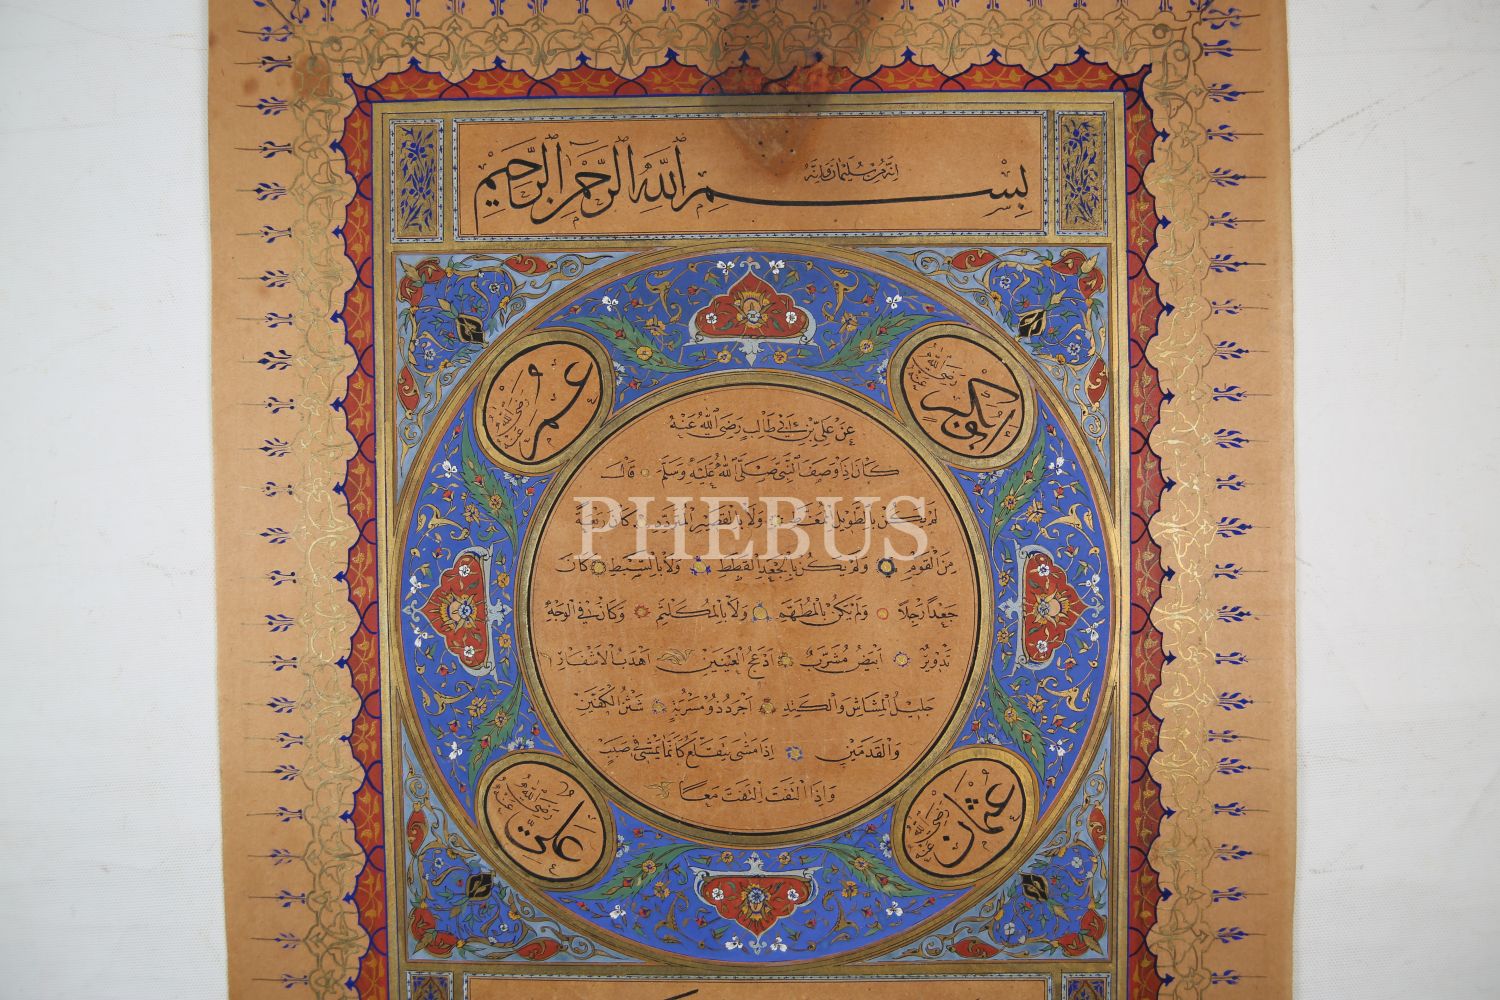 انه من سليمان وانه
بسم الله الرحمن الرحيم
ابو بكر رضي الله عنه
عمر رضي الله عنه
عَنْ عَلِيِّ بْنِ اَبِي طَالِبٍ رَضِيَ اللهُ عَنْهُ
كَانَ اِذَا وَصَفَ النَّبِيَّ صَلَّى اللهُ عَلَيْهِ وَسَلَّمَ قَالَ
لَمْ يَكُنْ بِالطَّوِيلِ الْمُمَغَّطِ وَلَا بِالْقَصِيرِ الْمُتَرَدِّدِ كَانَ رَبْعَةً
مِنَ الْقَوْمِ وَلَمْ يَكُنْ بِالْجَعْدِ الْقَطَطِ وَلَا بِالسَّبِطِ كَانَ
جَعْدًا رَجِلًا وَلَمْ يَكُنْ بِالْمُطَهَّمِ وَلَا بِالْمُكَلْثَمِ وَكَانَ فِي الْوَجْهِ
تَدْوِيرٌ اَبْيَضُ مُشْرَبٌ اَدْعَجُ الْعَيْنَيْنِ اَهْدَبُ الْاَشْفَارِ
جَلِيلُ الْمُشَاشِ وَالْكَتَدِ اَجْرَدُ ذُو مَسْرُبَةٍ شَثْنُ الْكَفَّيْنِ
وَالْقَدَمَيْنِ اِذَا مَشَى يَتَقَلَّعُ كَاَنَّمَا يَمْشِي فِي صَبَبٍ
وَاِذَا الْتَفَتَ الْتَفَتَ مَعًا
عثمان رضي الله عنه
علي رضي الله عنه
PHEBUS